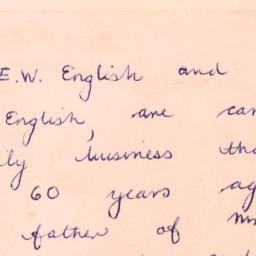 E.W. English and
English, are car
ly business tha
60 years ag
father of Mr